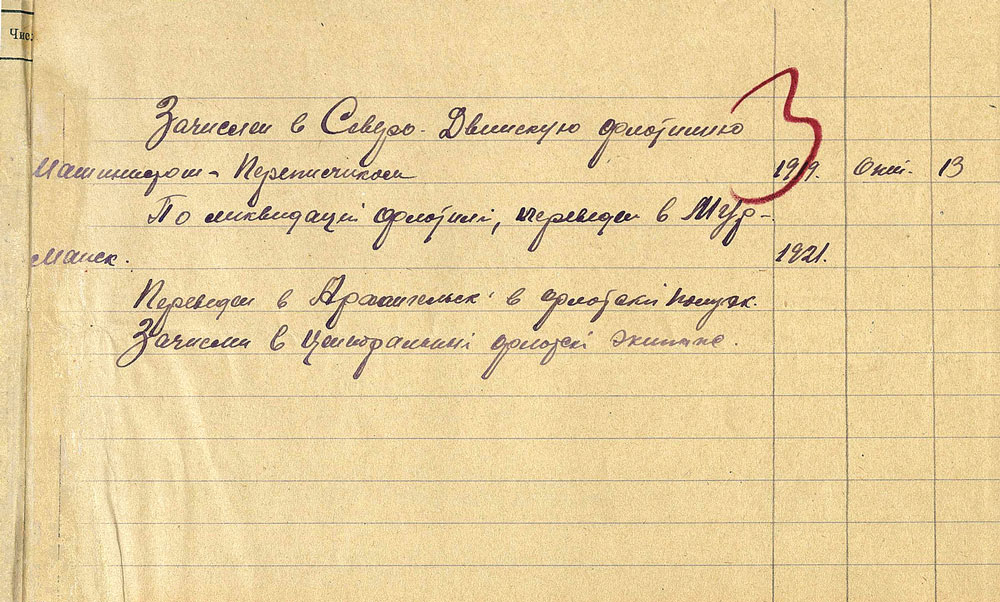 Чис.
3
Зачислен в Северо-Двинскую флотилию
Машинистом-Переписчиком 1919. Окт. 13
По ликвидаций флотилий, переведен в Мур-
манск. 1921.
Переведен в Архангельск в флотский полуэк.
Зачислен в Центральный флотский экипаж.